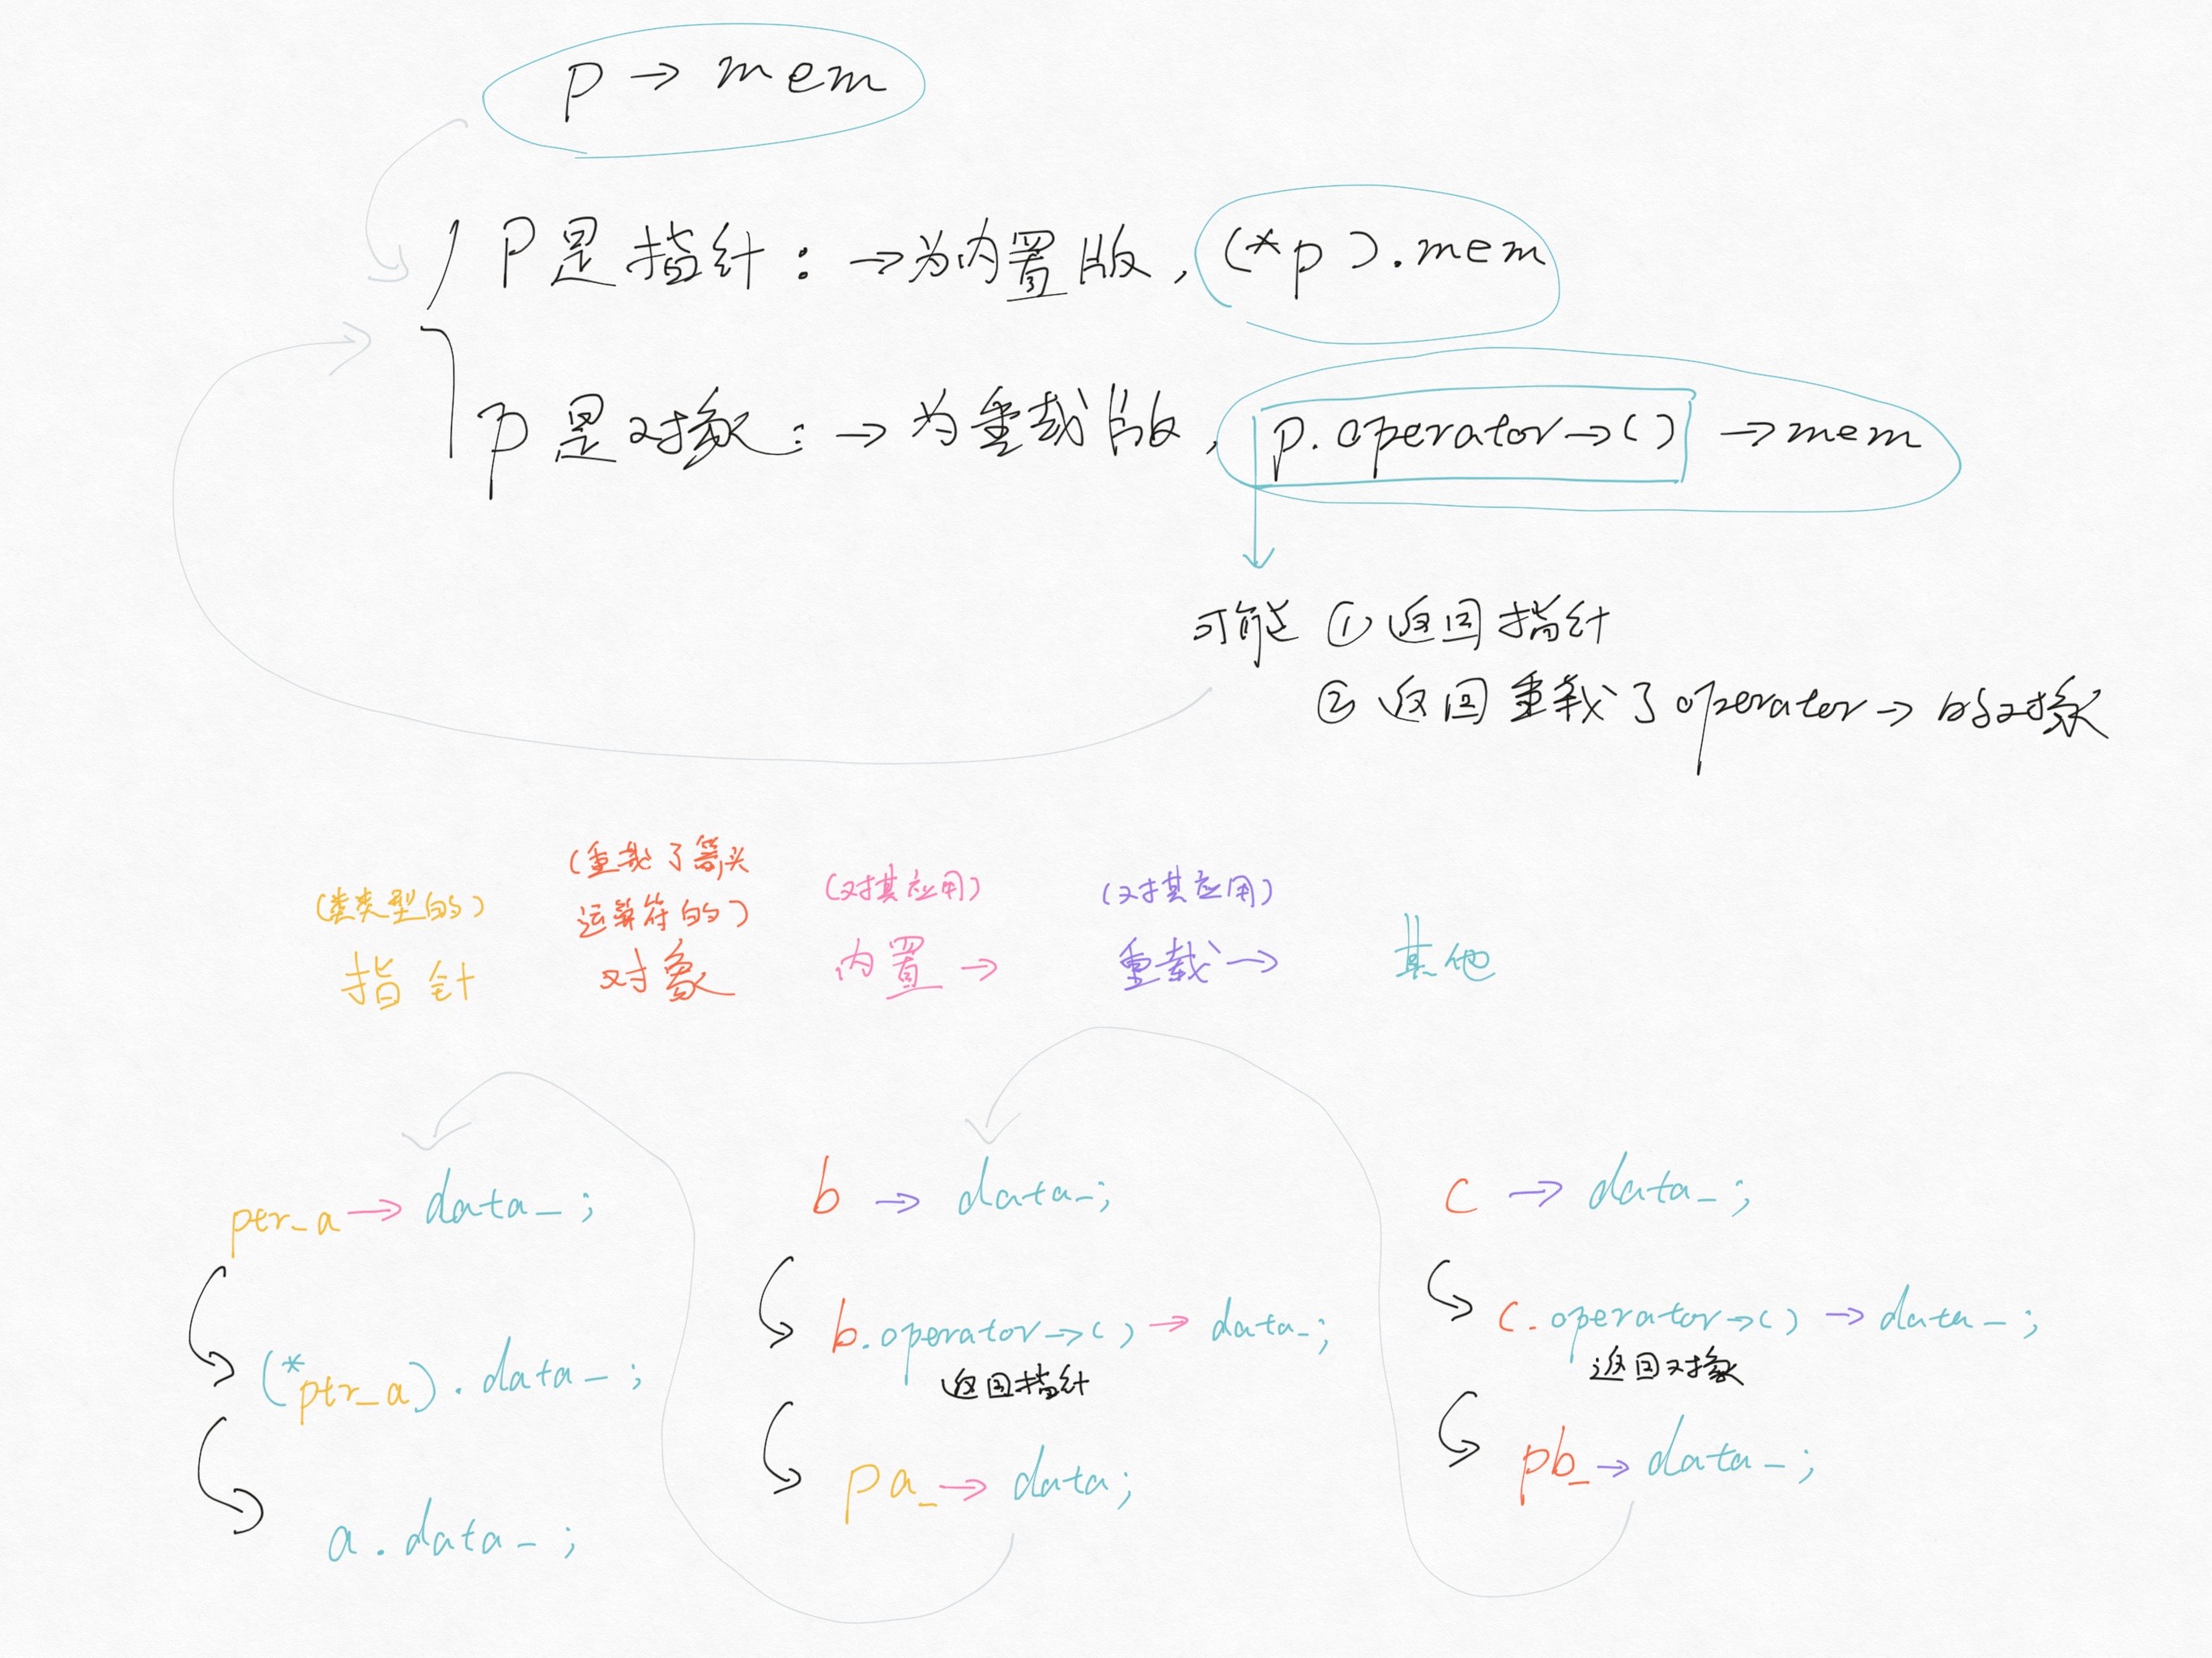 p → mem
P是指针：→为内置版，(*p).mem
p是对象：→为重载版，p.operator→() →mem
可能 ①返回指针
②返回重载了operator→的对象
(类类型的)
指针
(重载了箭头
运算符的)
对象
(对其应用)
内置→
(对其应用)
重载→
其他
ptr_a→data_;
(*ptr_a).data_;
a.data_;
b → data_;
b.operator→()→data_;
返回指针
pa_→data;
c → data_;
c.operator→()→data_;
返回对象
pb_→data_;